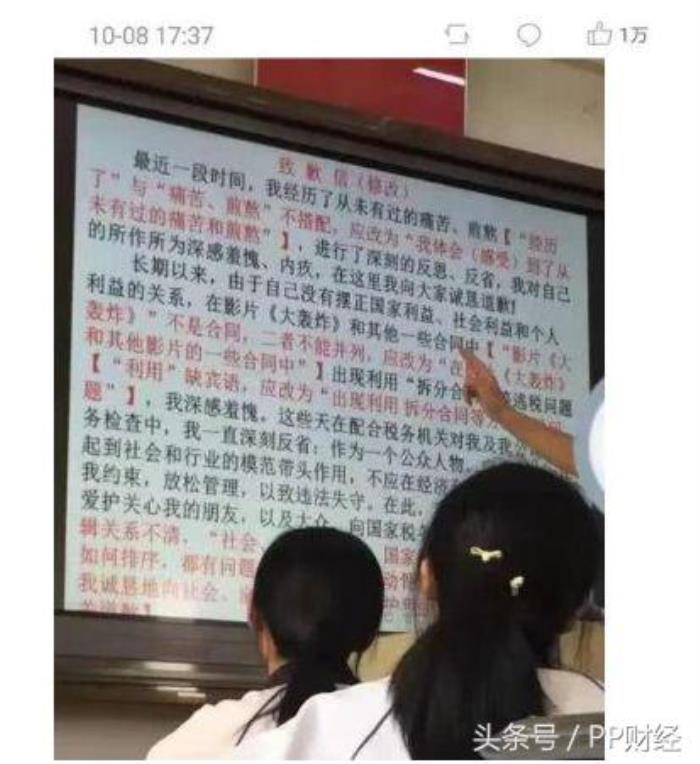 10-08 17:37
1万
致歉信(修改)
最近一段时间，我经历了从未有过的痛苦、煎熬【“经历
了”与“痛苦、煎熬”不搭配，应改为“我体会(感受)到了从
未有过的痛苦和煎熬”】，进行了深刻的反思、反省，我对自己
的所作所为深感羞愧、内疚，在这里我向大家诚恳道歉!
长期以来，由于自己没有摆正国家利益、社会利益和个人
利益的关系，在影片《大轰炸》和其他一些合同中【“影片《大
轰炸》”不是合同，二者不能并列，应改为“在《大轰炸》
和其他影片的一些合同中”】出现利用“拆分合逃税问题
【“利用”缺宾语，应改为“出现利用拆分合同等
题”】，我深感羞愧。这些天在配合税务机关对我及我公
务检查中，我一直深刻反省：作为一个公众人物，
起到社会和行业的模范带头作用，不应在经济
我约束，放松管理，以致违法失守。在此，
爱护关心我的朋友，以及大众，向国家税务
辑关系不清，“社会、国家
如何排序，都有问题
我诚恳地向社会、
头条号 / PP财经